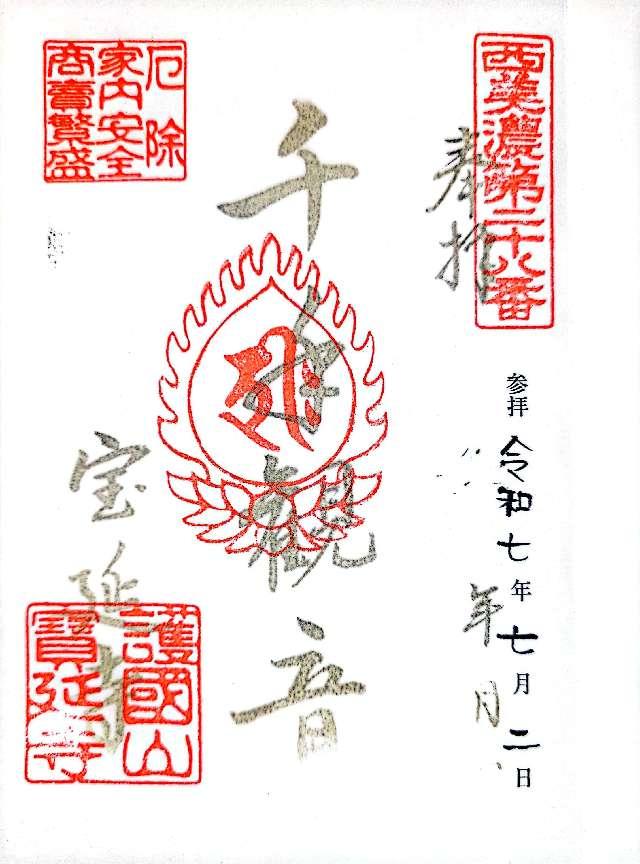 西美濃第二十八番
奉拝
参拝 令和七年七月二日
年 月
千手観音
宝延寺
厄除
家内安全
商売繁盛
護國山
寳延寺